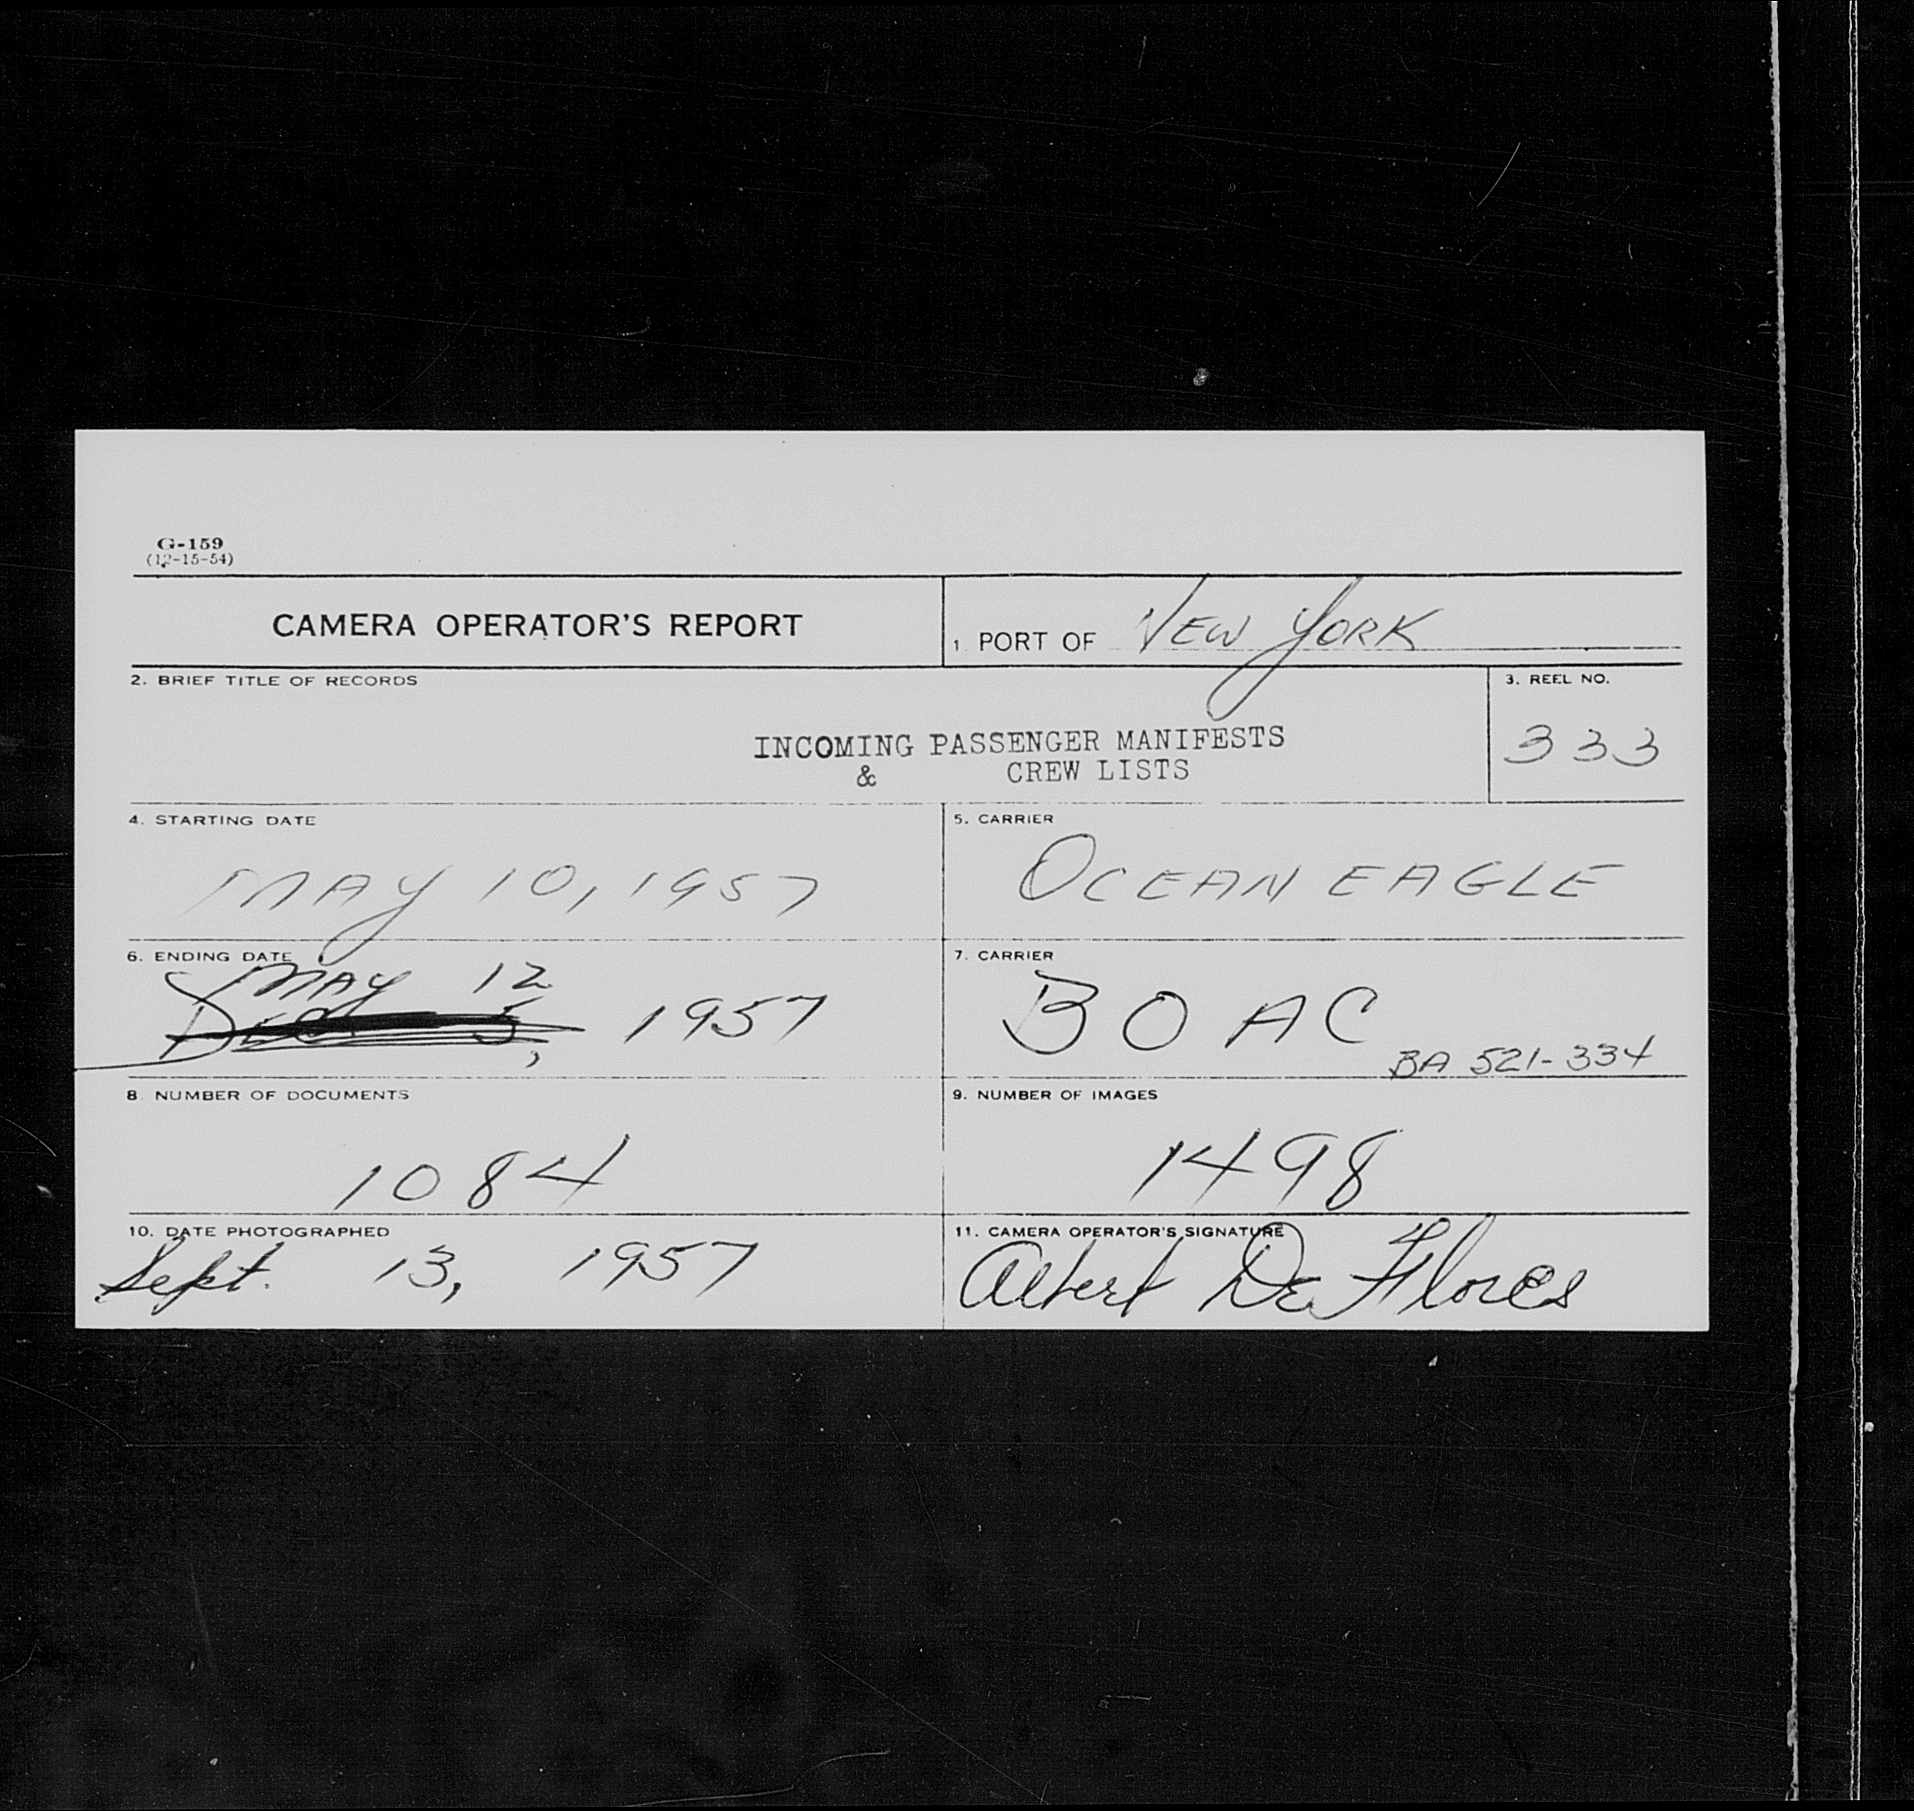 G-159
(12-15-54)
CAMERA OPERATOR'S REPORT
1. PORT OF NEW YORK
2. BRIEF TITLE OF RECORDS
INCOMING PASSENGER MANIFESTS
& CREW LISTS
3. REEL NO.
333
4. STARTING DATE
MAY 10, 1957
5. CARRIER
OCEAN EAGLE
6. ENDING DATE
MAY 12
5, 1957
7. CARRIER
BOAC
BA 521-334
8. NUMBER OF DOCUMENTS
1084
9. NUMBER OF IMAGES
1498
10. DATE PHOTOGRAPHED
Sept. 13, 1957
11. CAMERA OPERATOR'S SIGNATURE
Albert De Flores